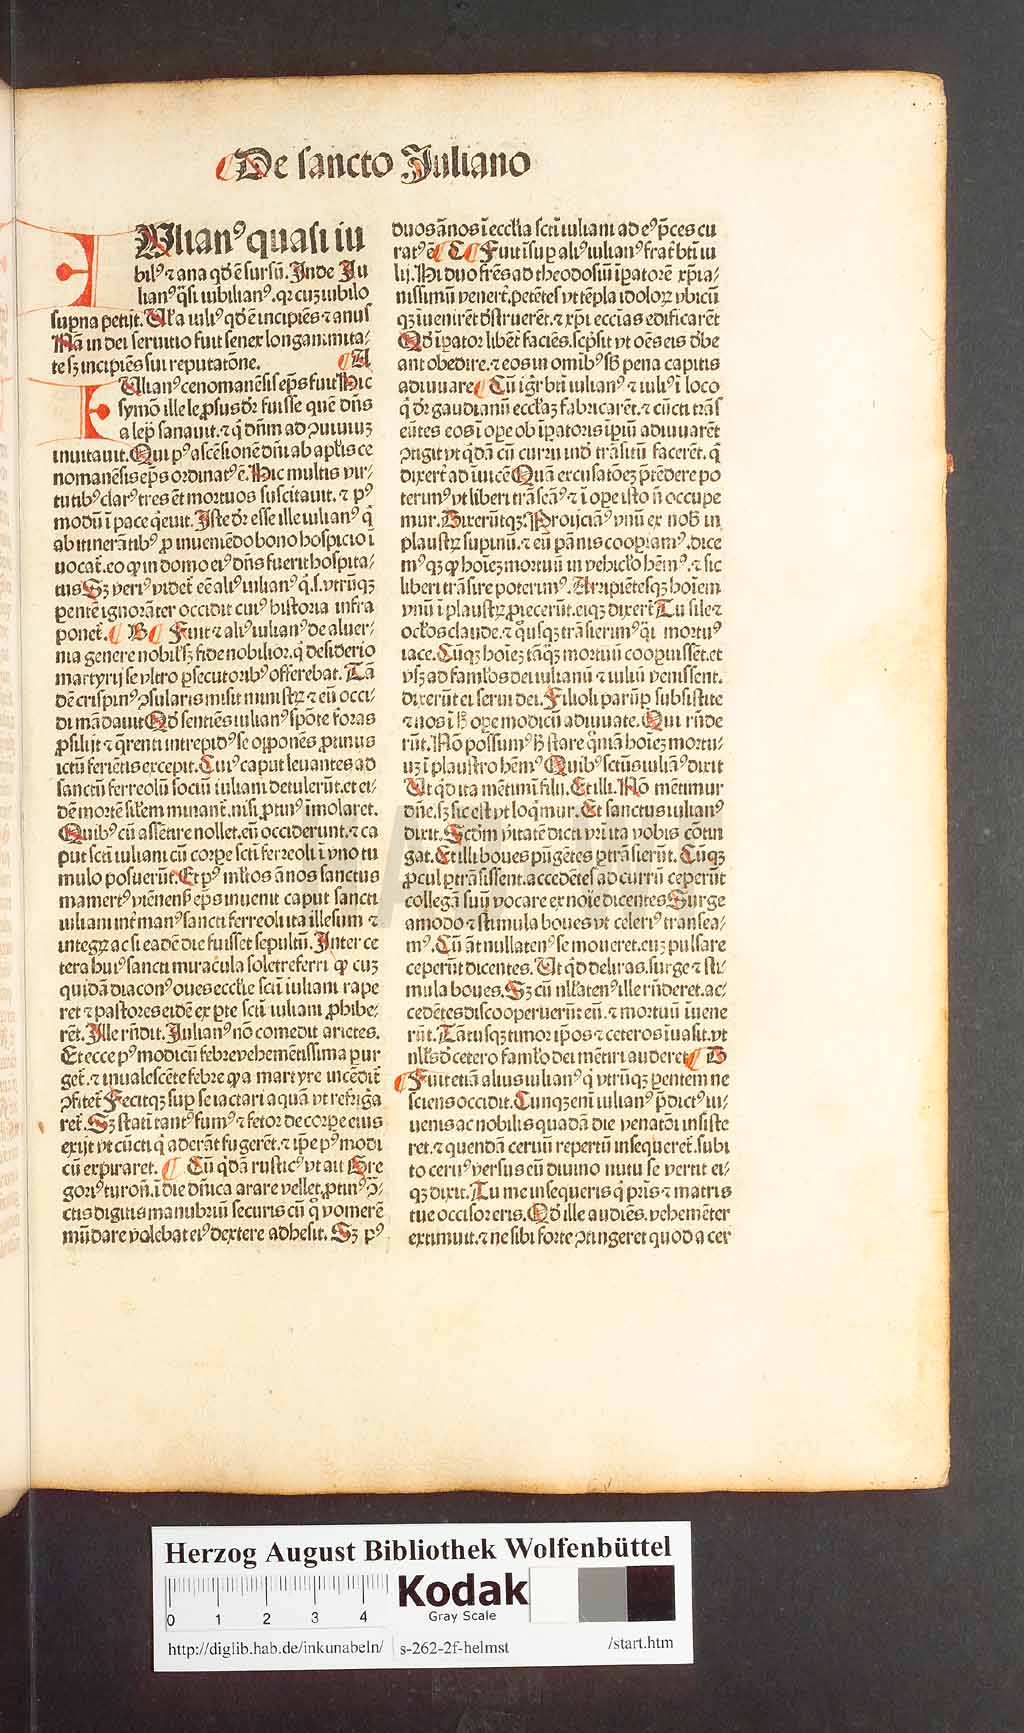 De sancto Juliano
IUlianꝰ quasi iu
bilꝰ ⁊ ana qd̕ ē sursū. Inde Ju
lianꝰ q̄si iubilianꝰ. qꝛ cuʒ iubilo
supna petijt. Vl̕a iuliꝰ qd̕ ē incipiēs ⁊ anus
Nā in dei seruitio fuit senex longanimita⸗
te sʒ incipiēs sui reputatōne. A
IUlianꝰ cenomanēsis ep̄s fuit Hic
symō ille leꝓsus dr̄ fuisse quē dn̄s
a lep̄ sanauit. ⁊ q̇ dn̄m ad ꝯuiuiuʒ
inuitauit. Qui pꝰ ascēsionē dn̄i ab aplis ce
nomanēsis ep̄s ordinatꝰ ē. Hic multis vir⸗
tutibꝰ clarꝰ tres ēt mortuos suscitauit. ⁊ pꝰ
modū ī pace q̇euit. Iste dr̄ esse ille iulianꝰ q̇
ab itinerātibꝰ ꝓ inueniēdo bono hospicio ī
uocat̄. eo ꝙ in domo eiꝰ dn̄s fuerit hospita⸗
tus Sʒ veriꝰ videt̄ eē aliꝰ iulianꝰ q̇.s. vtrūqʒ
pentē ignorāter occidit cuiꝰ historia infra
ponet̄. B Fuit ⁊ aliꝰ iulianꝰ de aluer⸗
nia genere nobilꝭ sʒ fide nobilior. q̇ desiderio
martyrij se vltro ꝑsecutoribꝰ offerebat. Tā
dē crispinꝰ ꝯsularis misit ministrꝝ ⁊ eū occi⸗
di mādauit Qd̕ sentiēs iulianꝰ spōte foras
ꝓsilijt ⁊ q̄renti intrepidꝰ se opponēs ꝓtinus
ictū feriētis excepit. Cuiꝰ caput leuantes ad
sanctū ferreolū sociū iuliani detulerūt. et ei⸗
dē mortē silem minant̄. nisi ꝓtinꝰ īmolaret.
Quibꝰ cū assētire nollet. eū occiderunt. ⁊ ca
put scti iuliani cū corpe scti ferreoli ī vno tu
mulo posuerūt. Et pꝰ ml̕tos ānos sanctus
mamertꝰ viēnens̄ ep̄s inuenit caput sancti
iuliani int̄ manꝰ sancti ferreoli ita illesum ⁊
integrꝝ ac si eadē die fuisset sepultū. Inter ce
tera huiꝰ sancti miracula solet referri ꝙ cuʒ
quidā diaconꝰ oues eccl̕ie scti iuliani rape
ret ⁊ pastores eidē ex pte scti iuliani ꝓhibe⸗
rēt. Ille rn̄dit. Julianꝰ nō comedit arietes.
Et ecce pꝰ modicū febre vehemētissima pur
get̄. ⁊ inualescēte febre ꝙ a martyre incēdit̄
ꝯfitet̄ Fecitqʒ sup se iactari aquā vt refriga
ret̄. Sʒ statī tantꝰ fumꝰ ⁊ fetor de corpe eius
exijt vt cūcti q̇ aderāt fugerēt. ⁊ ip̄e pꝰ modi
cū expiraret. Cū q̇dā rusticꝰ vt ait Gre
goriꝰ turon̄. ī die dn̄ica arare vellet. ꝓtinꝰ ꝯ̄⸗
ctis digitis manubriū securis cū q̄ vomerē
mūdare volebat eiꝰ dextere adhesit. Sʒ pꝰ
duos ānos ī eccl̕ia scti iuliani ad eꝰ p̄ces cu
ratꝰ ē C Fuit īsup aliꝰ iulianꝰ frat̄ bt̄i iu
lij. Hi duo fr̄es ad theodosiū īpatorē xp̄ia⸗
nissimū venerūt. petētes vt tēpla idolorꝝ vbicū
qʒ īuenirēt dstruerēt. ⁊ xp̄i ecclīas edificarēt
Qd̕ īpator libēt̄ faciēs. scp̄sit vt oēs eis dbe
ant obedire. ⁊ eos in omībꝰ sb̕ pena capitis
adiuuare Cū igr̄ bt̄i iulianꝰ ⁊ iuliꝰ ī loco
q̇ dr̄ gaudianū eccl̕iaʒ fabricarēt. ⁊ cūcti trās
eūtes eos ī oꝑe ob īpatoris īꝑiū adiuuarēt
ꝯtigit vt q̇dā cū curru inḋ trāsitū facerēt. q̇
dixerūt ad īuicē Quā excusatōeʒ p̄tēdere po
terimꝰ vt liberi trāseāꝰ ⁊ ī oꝑe isto n̄ occupe
mur. Dixerūtqʒ. Proijciāꝰ vnū ex nob̕ in
plaustrꝝ supinū. ⁊ eū pānis coopiamꝰ. dice
mꝰqʒ ꝙ hoīeʒ mortuū in vehicl̕o hēmꝰ. ⁊ sic
liberi trāsire poterimꝰ. Arripiētesqʒ hoīem
vnū ī plaustrꝝ ꝓiecerūt. eiqʒ dixerūt Tu sile ⁊
ocl̕os claude. ⁊ q̇usqʒ trāsierimꝰ q̇i mortuꝰ
iace. Cūqʒ hoīeʒ tāqʒ mortuū coopuissēt. et
vsʒ ad faml̕os dei iulianū ⁊ iuliū venissent.
dixerūt ei serui dei. Filioli parūꝑ subsistite
⁊ nos ī h̕ oꝑe modicū adiuuate. Qui rn̄de
rūt. Nō possumꝰ h̕ stare qm̄ā hoīeʒ mortu⸗
uʒ ī plaustro hēmꝰ Quibꝰ sctūs iuliāꝰ dixit
Ut qd̕ ita mētimī filij. Et illi. Nō mētimur
dn̄e. sʒ sic est vt loq̇mur. Et sanctus iulianꝰ
dixit. Scd̕m v̄itatē dicti vr̄i ita vobis cōtin
gat. Et illi boues pūgētes ꝑtrāsierūt. Cūqʒ
ꝓcul ꝑtrāsissent. accedētes ad currū ceperūt
collegā suū vocare ex noīe dicentes Surge
amodo ⁊ stimula boues vt celeriꝰ transea⸗
mꝰ. Cū āt nullatenꝰ se moueret. euʒ pulsare
ceperūt dicentes. Ut qd̕ deliras. surge ⁊ sti⸗
mula boues. Sʒ cū nl̕latenꝰ ille rn̄deret. ac⸗
cedētes discooperuerūt eū. ⁊ mortuū īuene
rūt. Tātusqʒ timor ip̄os ⁊ ceteros īuasit. vt
nl̕lꝰ d̕ cetero faml̕o dei mētiri auderet D
Fuit etiā alius iulianꝰ q̇ vtrūqʒ pentem ne
sciens occidit. Cunqʒ enī iulianꝰ p̄dictꝰ iu⸗
uenis ac nobilis quadā die venatōi insiste
ret. ⁊ quendā ceruū repertū insequeret̄. subi
to ceruꝰ versus eū diuino nutu se vertit ei⸗
qʒ dixit. Tu me insequeris q̇ pris̄ ⁊ matris
tue occisor eris. Qd̕ ille audiēs. vehemēter
extimuit. ⁊ ne sibi forte ꝯtingeret quod a cer
Herzog August Bibliothek Wolfenbüttel
0 1 2 3 4
Kodak
Gray Scale
http://diglib.hab.de/inkunabeln/ s-262-2f-helmst /start.htm